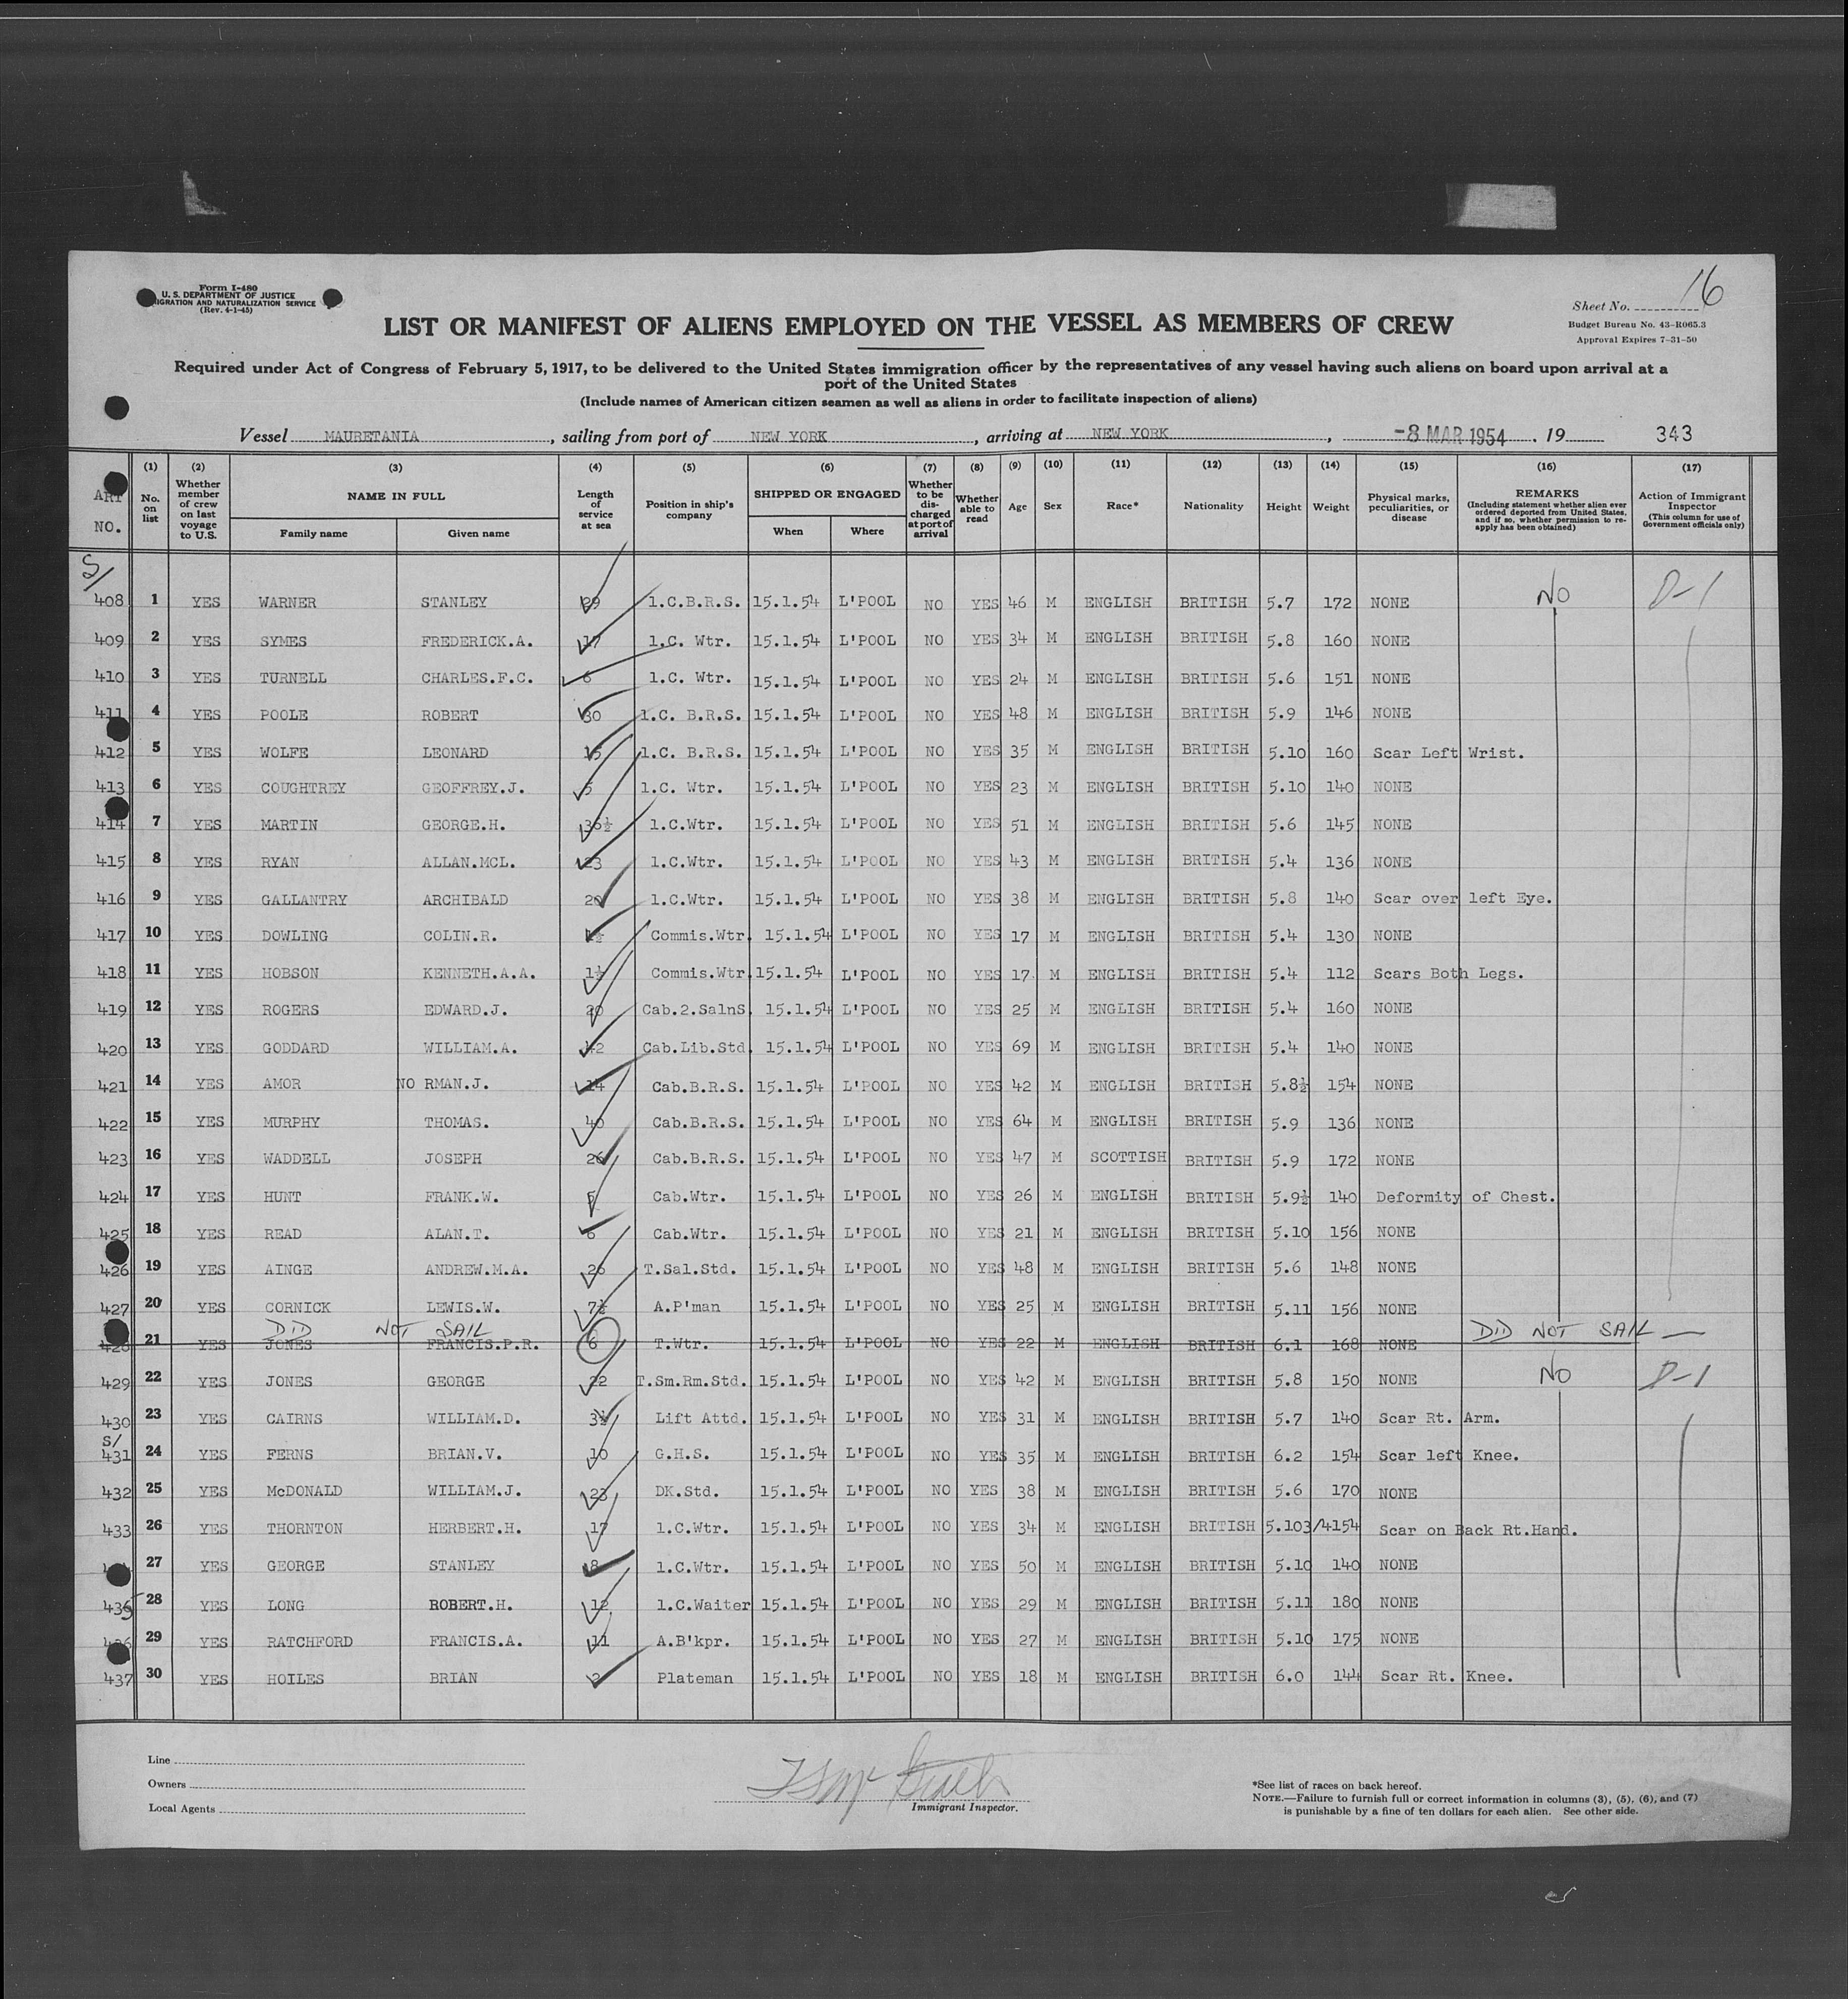 Form I-480
U. S. DEPARTMENT OF JUSTICE
IGRATION AND NATURALIZATION SERVICE
(Rev. 4-1-45)
Sheet No. 16
Budget Bureau No. 43-R065.3
Approval Expires 7-31-50
LIST OR MANIFEST OF ALIENS EMPLOYED ON THE VESSEL AS MEMBERS OF CREW
Required under Act of Congress of February 5, 1917, to be delivered to the United States immigration officer by the representatives of any vessel having such aliens on board upon arrival at a
port of the United States
(Include names of American citizen seamen as well as aliens in order to facilitate inspection of aliens)
Vessel MAURETANIA, sailing from port of NEW YORK, arriving at NEW YORK, -8 MAR 1954. 19 343
ART NO. (1) No. on list (2) Whether member of crew on last voyage to U.S. (3) NAME IN FULL Family name Given name (4) Length of service at sea (5) Position in ship's company (6) SHIPPED OR ENGAGED When Where (7) Whether to be discharged at port of arrival (8) Whether able to read (9) Age (10) Sex (11) Race* (12) Nationality (13) Height (14) Weight (15) Physical marks, peculiarities, or disease (16) REMARKS (Including statement whether alien ever ordered deported from United States, and if so, whether permission to re-apply has been obtained) (17) Action of Immigrant Inspector (This column for use of Government officials only)
S/
408 1 YES WARNER STANLEY 29 1.C.B.R.S. 15.1.54 L'POOL NO YES 46 M ENGLISH BRITISH 5.7 172 NONE NO D-1
409 2 YES SYMES FREDERICK.A. 17 1.C. Wtr. 15.1.54 L'POOL NO YES 34 M ENGLISH BRITISH 5.8 160 NONE
410 3 YES TURNELL CHARLES.F.C. 6 1.C. Wtr. 15.1.54 L'POOL NO YES 24 M ENGLISH BRITISH 5.6 151 NONE
411 4 YES POOLE ROBERT 30 1.C. B.R.S. 15.1.54 L'POOL NO YES 48 M ENGLISH BRITISH 5.9 146 NONE
412 5 YES WOLFE LEONARD 15 1.C. B.R.S. 15.1.54 L'POOL NO YES 35 M ENGLISH BRITISH 5.10 160 Scar Left Wrist.
413 6 YES COUGHTREY GEOFFREY.J. 5 1.C. Wtr. 15.1.54 L'POOL NO YES 23 M ENGLISH BRITISH 5.10 140 NONE
414 7 YES MARTIN GEORGE.H. 36½ 1.C.Wtr. 15.1.54 L'POOL NO YES 51 M ENGLISH BRITISH 5.6 145 NONE
415 8 YES RYAN ALLAN.MCL. 23 1.C.Wtr. 15.1.54 L'POOL NO YES 43 M ENGLISH BRITISH 5.4 136 NONE
416 9 YES GALLANTRY ARCHIBALD 20 1.C.Wtr. 15.1.54 L'POOL NO YES 38 M ENGLISH BRITISH 5.8 140 Scar over left Eye.
417 10 YES DOWLING COLIN.R. Commis.Wtr. 15.1.54 L'POOL NO YES 17 M ENGLISH BRITISH 5.4 130 NONE
418 11 YES HOBSON KENNETH.A.A. 1½ Commis.Wtr. 15.1.54 L'POOL NO YES 17 M ENGLISH BRITISH 5.4 112 Scars Both Legs.
419 12 YES ROGERS EDWARD.J. 20 Cab.2.SalnS. 15.1.54 L'POOL NO YES 25 M ENGLISH BRITISH 5.4 160 NONE
420 13 YES GODDARD WILLIAM.A. 42 Cab.Lib.Std. 15.1.54 L'POOL NO YES 69 M ENGLISH BRITISH 5.4 140 NONE
421 14 YES AMOR NO RMAN.J. 14 Cab.B.R.S. 15.1.54 L'POOL NO YES 42 M ENGLISH BRITISH 5.8½ 154 NONE
422 15 YES MURPHY THOMAS. 40 Cab.B.R.S. 15.1.54 L'POOL NO YES 64 M ENGLISH BRITISH 5.9 136 NONE
423 16 YES WADDELL JOSEPH 26 Cab.B.R.S. 15.1.54 L'POOL NO YES 47 M SCOTTISH BRITISH 5.9 172 NONE
424 17 YES HUNT FRANK.W. 5 Cab.Wtr. 15.1.54 L'POOL NO YES 26 M ENGLISH BRITISH 5.9½ 140 Deformity of Chest.
425 18 YES READ ALAN.T. 6 Cab.Wtr. 15.1.54 L'POOL NO YES 21 M ENGLISH BRITISH 5.10 156 NONE
426 19 YES AINGE ANDREW.M.A. 26 T.Sal.Std. 15.1.54 L'POOL NO YES 48 M ENGLISH BRITISH 5.6 148 NONE
427 20 YES CORNICK LEWIS.W. 7½ A.P'man 15.1.54 L'POOL NO YES 25 M ENGLISH BRITISH 5.11 156 NONE
DID NOT SAIL DID NOT SAIL —
428 21 YES JONES FRANCIS.P.R. 6 T.Wtr. 15.1.54 L'POOL NO YES 22 M ENGLISH BRITISH 6.1 168 NONE
429 22 YES JONES GEORGE 22 T.Sm.Rm.Std. 15.1.54 L'POOL NO YES 42 M ENGLISH BRITISH 5.8 150 NONE NO D-1
430 23 YES CAIRNS WILLIAM.D. 3½ Lift Attd. 15.1.54 L'POOL NO YES 31 M ENGLISH BRITISH 5.7 140 Scar Rt. Arm.
S/
431 24 YES FERNS BRIAN.V. 10 G.H.S. 15.1.54 L'POOL NO YES 35 M ENGLISH BRITISH 6.2 154 Scar left Knee.
432 25 YES McDONALD WILLIAM.J. 23 DK.Std. 15.1.54 L'POOL NO YES 38 M ENGLISH BRITISH 5.6 170 NONE
433 26 YES THORNTON HERBERT.H. 17 1.C.Wtr. 15.1.54 L'POOL NO YES 34 M ENGLISH BRITISH 5.103/4154 Scar on Back Rt.Hand.
27 YES GEORGE STANLEY 8 1.C.Wtr. 15.1.54 L'POOL NO YES 50 M ENGLISH BRITISH 5.10 140 NONE
435 28 YES LONG ROBERT.H. 12 1.C.Waiter 15.1.54 L'POOL NO YES 29 M ENGLISH BRITISH 5.11 180 NONE
436 29 YES RATCHFORD FRANCIS.A. 11 A.B'kpr. 15.1.54 L'POOL NO YES 27 M ENGLISH BRITISH 5.10 175 NONE
437 30 YES HOILES BRIAN 2 Plateman 15.1.54 L'POOL NO YES 18 M ENGLISH BRITISH 6.0 144 Scar Rt. Knee.
Line
Owners
Local Agents
Immigrant Inspector.
*See list of races on back hereof.
NOTE.—Failure to furnish full or correct information in columns (3), (5), (6), and (7)
is punishable by a fine of ten dollars for each alien. See other side.